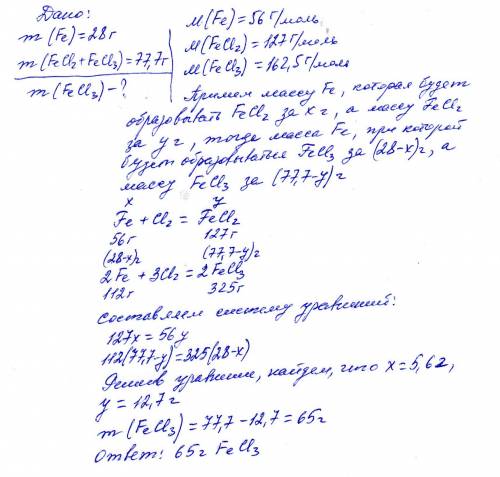 Дано:
m(Fe)=28г
m(FeCl₂+FeCl₃)=77,7г
m(FeCl₃)-?
M(Fe)=56г/моль
M(FeCl₂)=127г/моль
M(FeCl₃)=162,5г/моль
Примем массу Fe, которая будет
образовывать FeCl₂ за x г, а массу FeCl₂
за y г, тогда масса Fe, при которой
будет образовываться FeCl₃ за (28-x)г, а
массу FeCl₃ за (77,7-y)г
x y
Fe + Cl₂ = FeCl₂
56г 127г
(28-x)г (77,7-y)г
2Fe + 3Cl₂ = 2FeCl₃
112г 325г
Составляем систему уравнений:
127x = 56y
112(77,7-y)=325(28-x)
Решив уравнение, найдем, что x=5,6г,
y = 12,7г
m(FeCl₃)=77,7-12,7=65г
Ответ: 65г FeCl₃